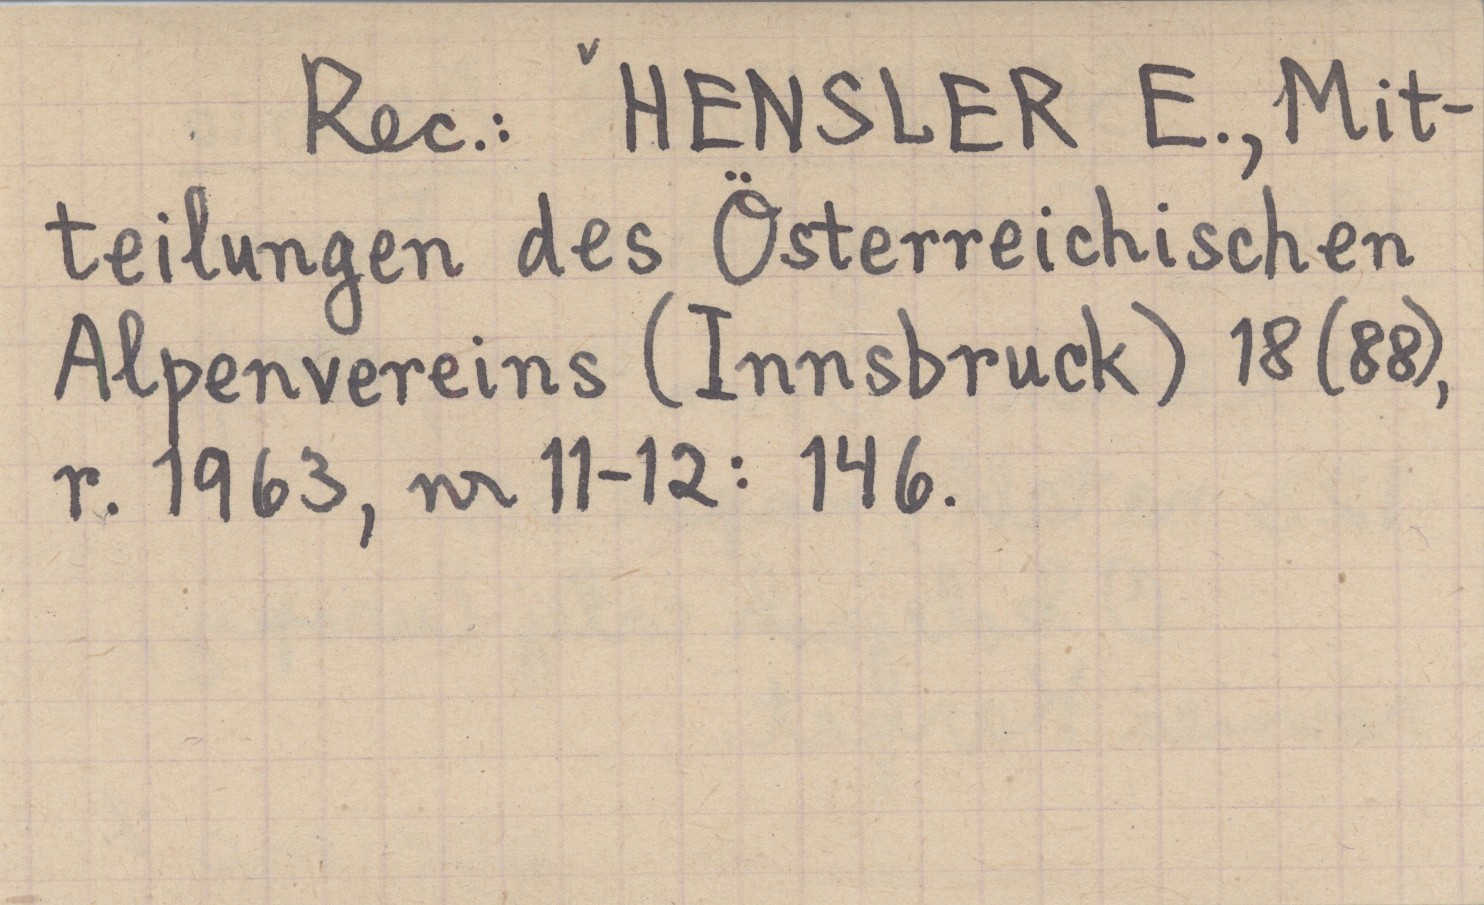 Rec.: ˅HENSLER E., Mit-
teilungen des Österreichischen
Alpenvereins (Innsbruck) 18(88),
r. 1963, nr 11-12: 146.